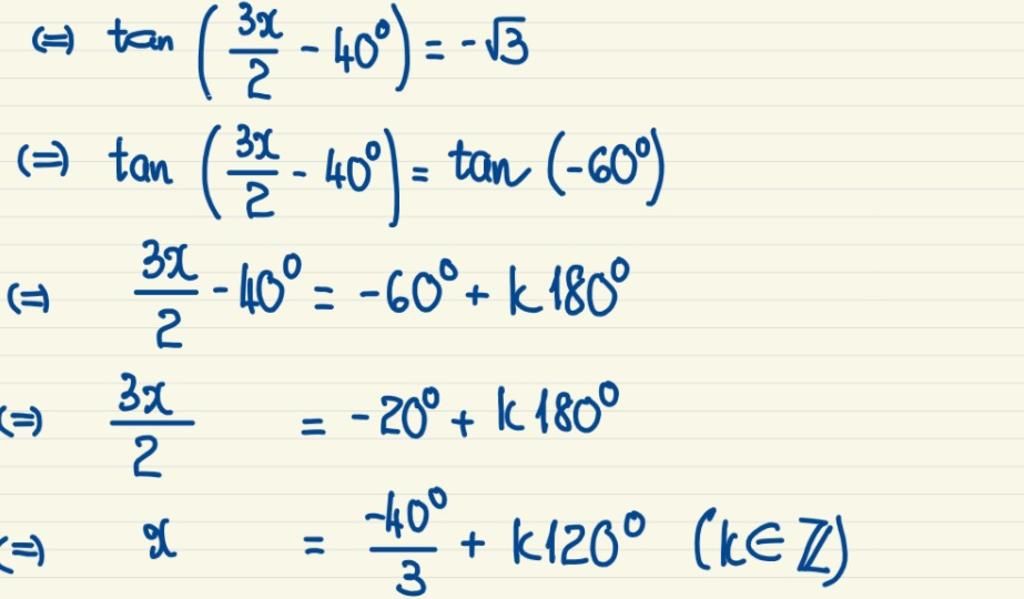 (=) tan (3x/2 - 40°) = -√3
(=) tan (3x/2 - 40°) = tan (-60°)
(=) 3x/2 - 40° = -60° + k180°
(=) 3x/2 = -20° + k180°
(=) x = -40°/3 + k120° (k∈ℤ)